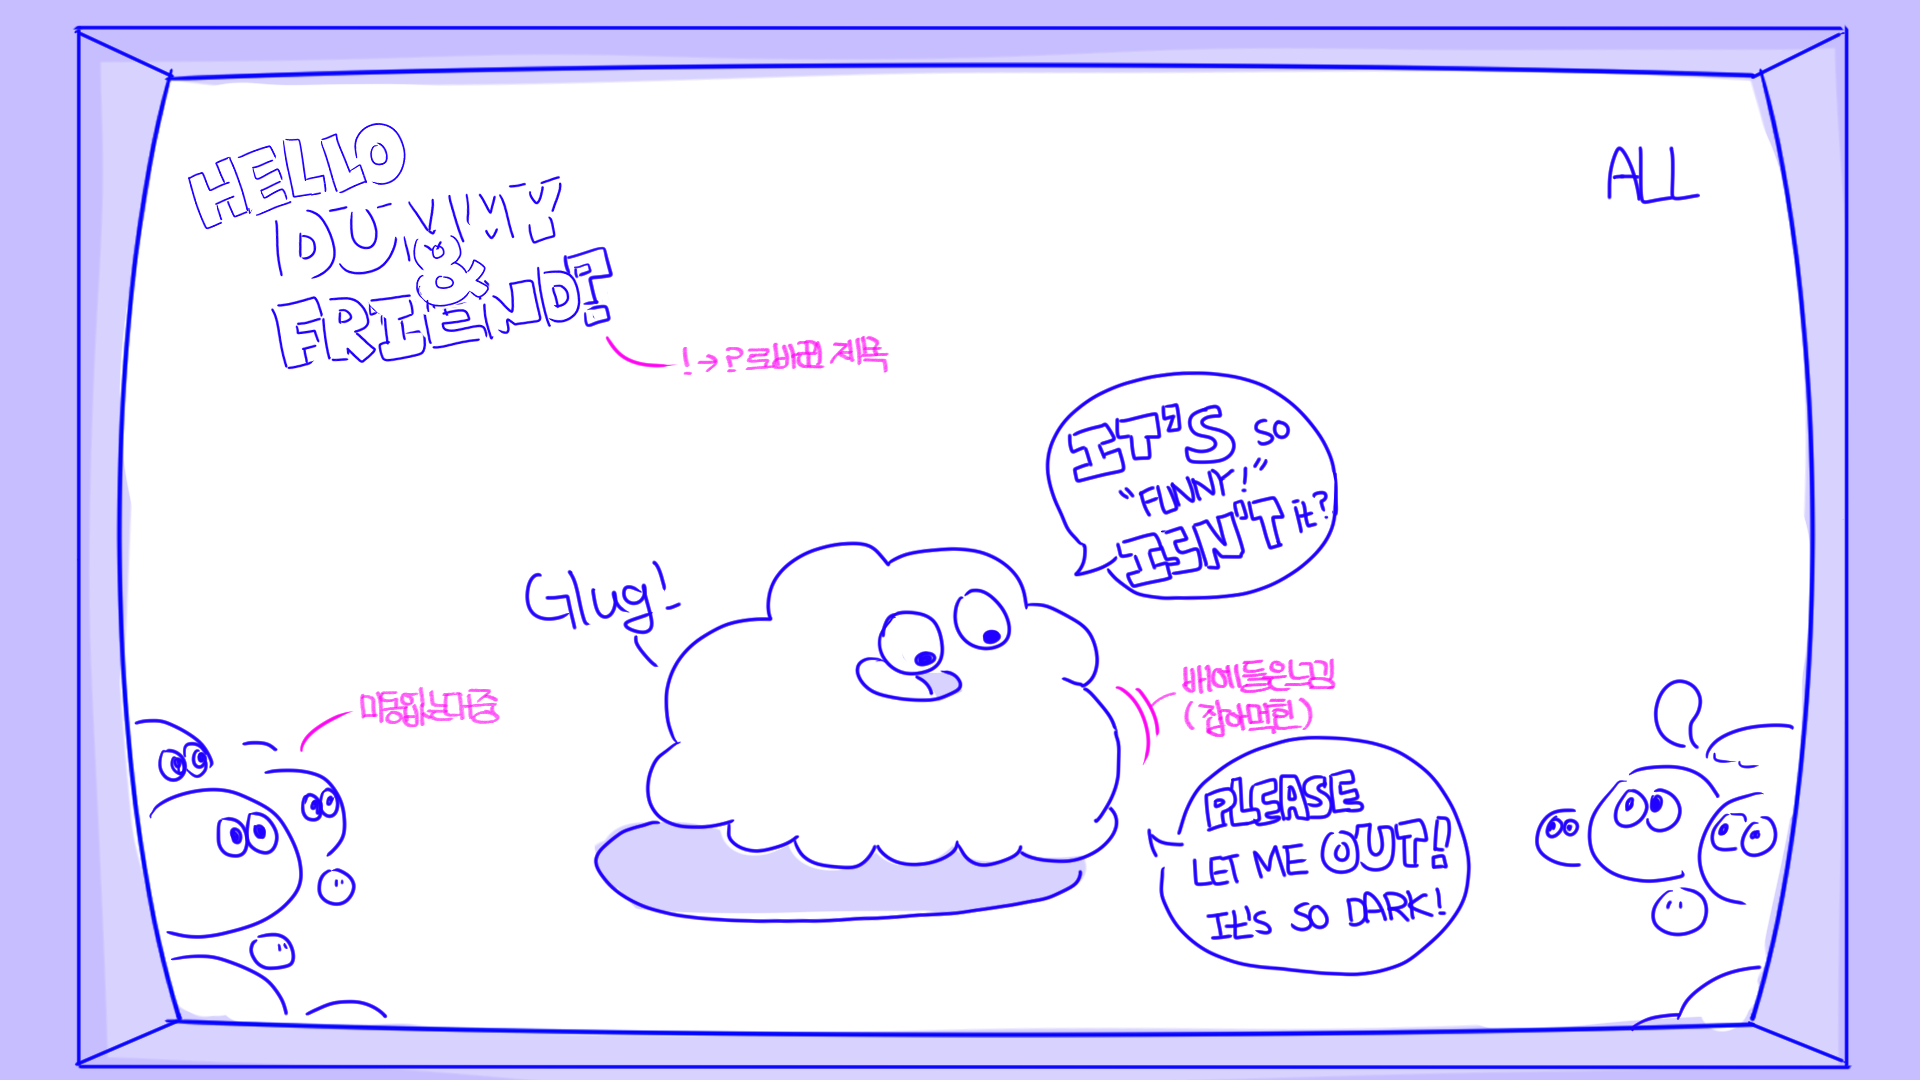 HELLO
DUMMY
&
FRIEND?
ALL
! → ?로 바뀐 제목
IT'S so
"FUNNY!"
ISN'T it?
Glug!
미동없는 마중
배에 들은 느낌
(잡아먹힌)
PLEASE
LET ME OUT!
It's SO DARK!